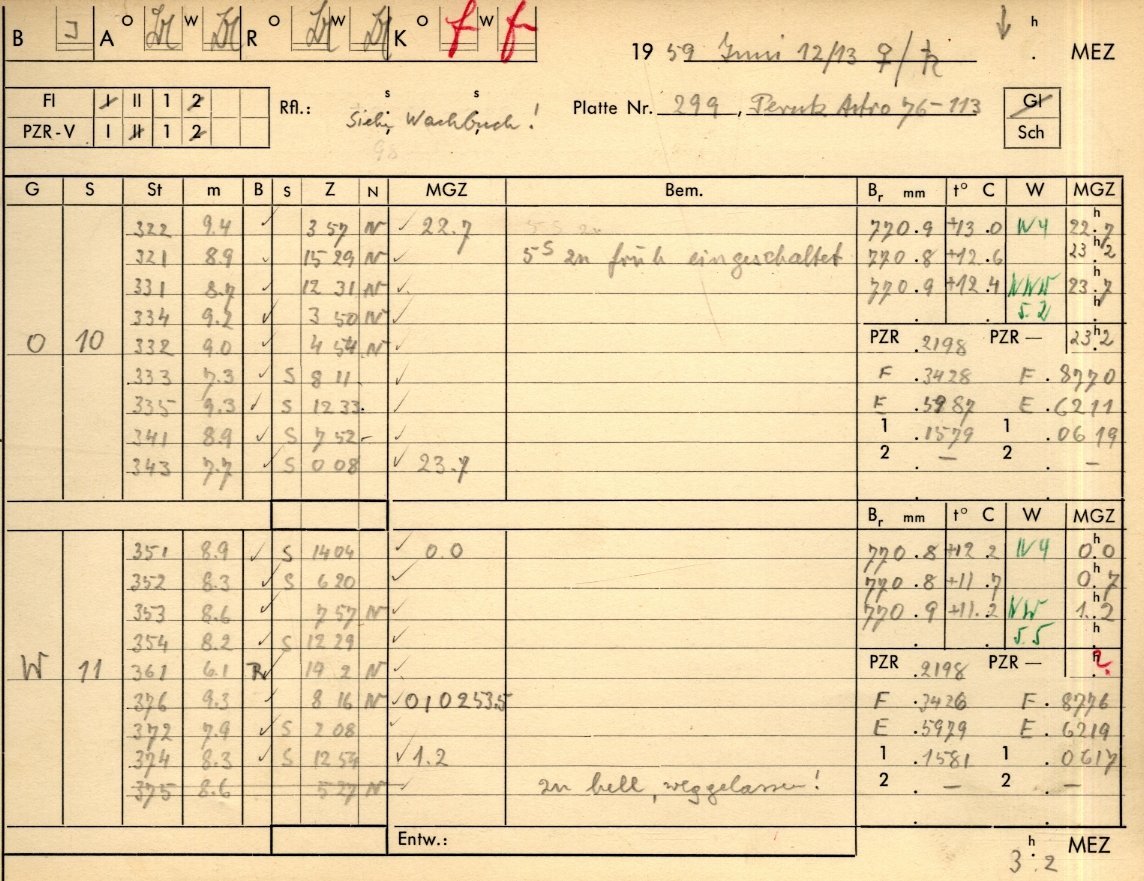 B A O W R O W K O f W f 1959 Juni 12/13 ♀/♄ h . MEZ
FI I II 1 2
PZR-V I II 1 2
Rfl.: s s Siehe Wachbuch!
Platte Nr. 299, Perutz Astro 76-113
Gl
Sch
G S St m B S Z N MGZ Bem. Br mm t° C W MGZ
322 9.4 ✓ 3 57 N ✓ 22.7 770.9 +13.0 N4 22.7 h
321 8.9 ✓ 15 29 N ✓ 5s zu früh eingeschaltet 770.8 +12.6 23.2 h
331 8.7 ✓ 12 31 N ✓ 770.9 +12.4 NNW 23.7 h
334 9.2 ✓ 3 50 N ✓ 5.2 . h
O 10 332 9.0 ✓ 4 54 N ✓ PZR .2198 PZR — 23.2 h
333 7.3 ✓ S 8 11 ✓ F .3428 F .8770
335 9.3 ✓ S 12 33 ✓ E .5987 E .6211
341 8.9 ✓ S 7 52 ✓ 1 .1579 1 .0619
343 7.7 ✓ S 0 08 ✓ 23.7 2 — 2 . —
Br mm t° C W MGZ
351 8.9 ✓ S 14 04 ✓ 0.0 770.8 +12.2 N4 0.0 h
352 8.3 S 6 20 ✓ 770.8 +11.7 0.7 h
353 8.6 ✓ 7 57 N ✓ 770.9 +11.2 NW 1.2 h
354 8.2 ✓ S 12 29 ✓ 5.5 . h
W 11 361 6.1 R✓ 19 2 N ✓ PZR .2198 PZR — h ?
376 9.3 ✓ 8 16 N ✓ 010253.5 F .3426 F .8776
372 7.9 ✓ S 2 08 ✓ E .5979 E .6219
374 8.3 ✓ S 12 54 ✓ 1.2 1 .1581 1 .0617
375 8.6 5 27 N ✓ zu hell, weggelassen! 2 — 2 . —
Entw.: 3.2 h MEZ